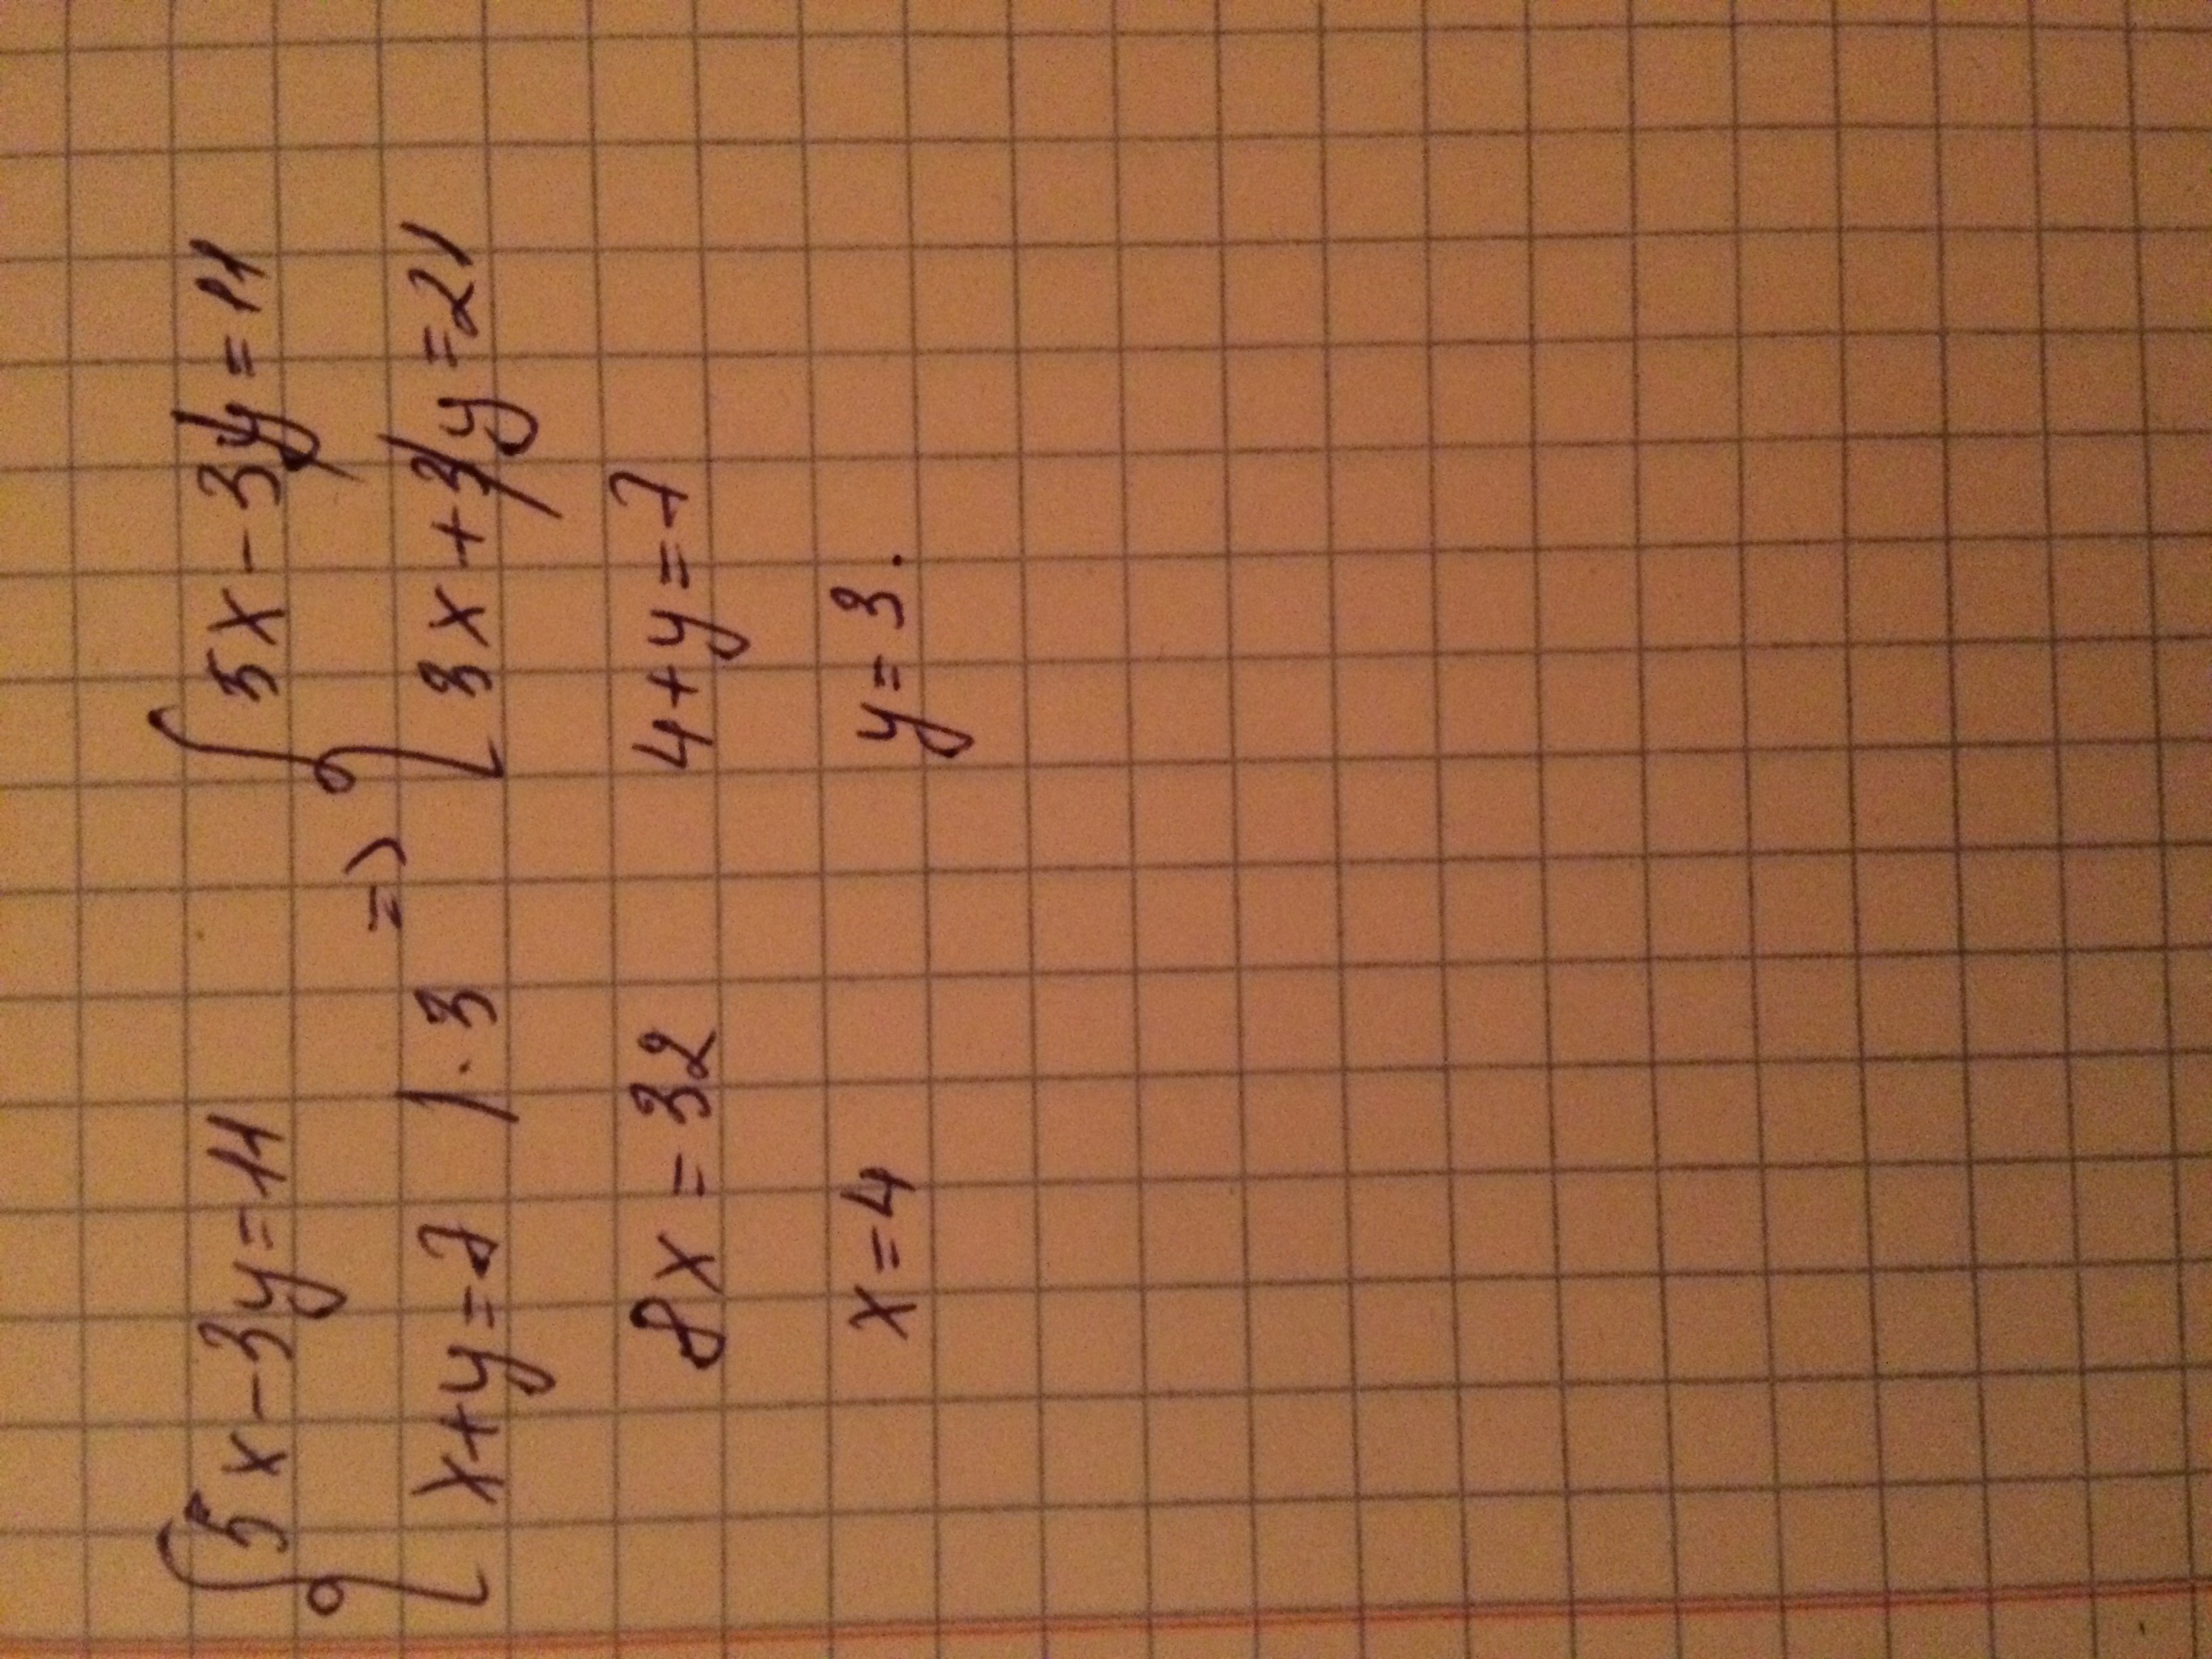 {5x-3y=11
{x+y=7 |·3 =>
{5x-3y=11
{3x+3y=21
8x=32
x=4
4+y=7
y=3.